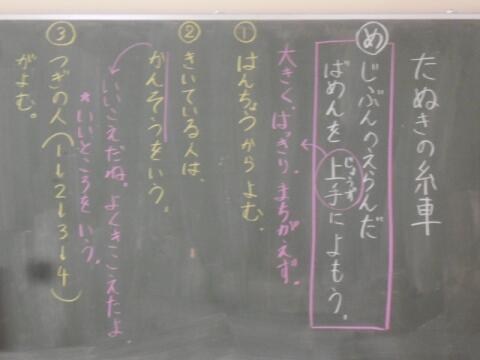 たぬきの糸車
め じぶんのえらんだ
ばめんを上手によもう。
じょうず
大きく、はっきり、まちがえず。
① はんちょうからよむ。
② きいている人は、
かんそうをいう。
いいこえだね。よくきこえたよ。
*いいところをいう。
③ つぎの人(1→2→3→4)
がよむ。